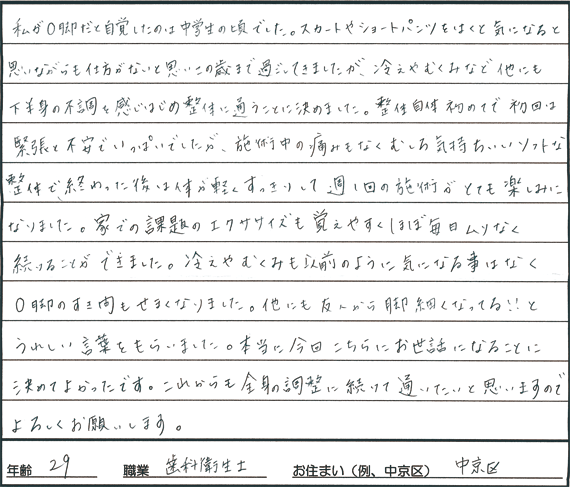 私がO脚だと自覚したのは中学生の頃でした。スカートやショートパンツをはくと気になると
思いながらも仕方がないと思いこの歳まで過ごしてきましたが、冷えやむくみなど他にも
下半身の不調を感じはじめ整体に通うことに決めました。整体自体初めてで初回は
緊張と不安でいっぱいでしたが、施術中の痛みもなくむしろ気持ちいいソフトな
整体で、終わった後は体が軽くすっきりして週1回の施術がとても楽しみに
なりました。家での課題のエクササイズも覚えやすくほぼ毎日ムリなく
続けることができました。冷えやむくみも以前のように気になる事はなく
O脚のすき間もせまくなりました。他にも友人から脚細くなってる!!と
うれしい言葉をもらいました。本当に今回こちらにお世話になることに
決めてよかったです。これからも全身の調整に続けて通いたいと思いますので
よろしくお願いします。
年齢 29 職業 歯科衛生士 お住まい(例、中京区) 中京区